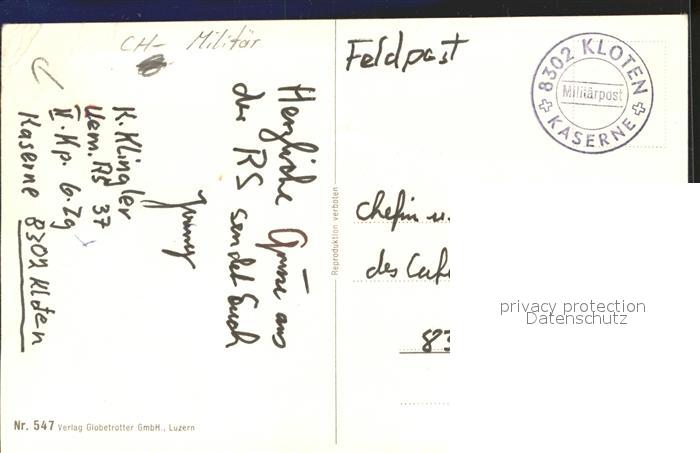 CH- Militär
Feldpost
8302 KLOTEN
Militärpost
KASERNE
Herzliche Grüsse aus
der RS sendet Euch
K. Klingler
Uem. RS 37
II. Kp. 6. Zg
Kaserne 8302 Kloten
Chefin u.
des Cafe
83
Reproduktion verboten
privacy protection
Datenschutz
Nr. 547 Verlag Globetrotter GmbH., Luzern